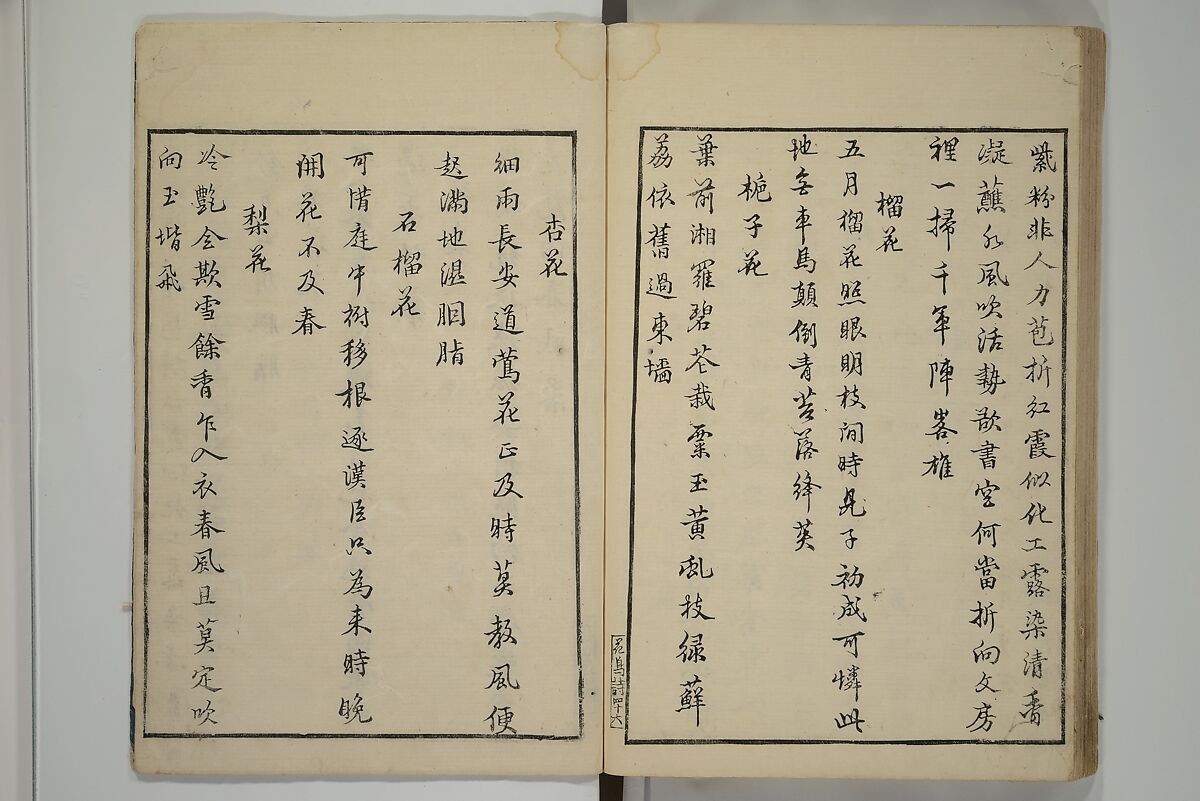 紫粉非人力苞折紅霞似化工露染清香
凝蘸水風吹活勢欲書空何當折向文房
裡一掃千軍陣畧雄
榴花
五月榴花照眼明枝間時見子初成可憐此
地無車馬顛倒青苔落絳英
梔子花
葉前湘羅碧花栽粟玉黄乱枝緑蘚
荔依舊過東墻
花鳥
四十六
杏花
細雨長安道鶯花正及時莫教風便
起滿地濕胭脂
石榴花
可惜庭中樹移根逐漢臣只為来時晚
開花不及春
梨花
冷艷全欺雪餘香乍入衣春風且莫定吹
向玉堦飛